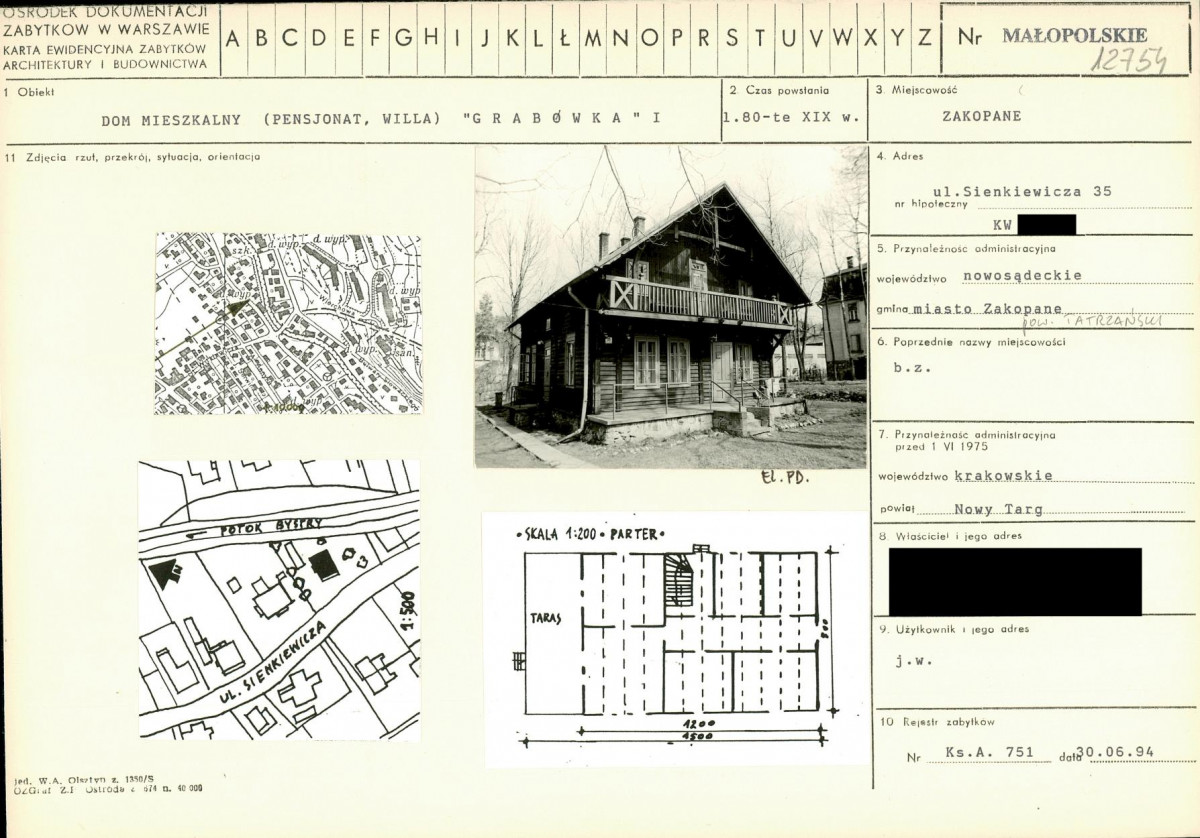 OŚRODEK DOKUMENTACJI
ZABYTKÓW W WARSZAWIE
KARTA EWIDENCYJNA ZABYTKÓW
ARCHITEKTURY I BUDOWNICTWA
A B C D E F G H I J K L Ł M N O P R S T U V W X Y Z
Nr MAŁOPOLSKIE
12754
1 Obiekt
DOM MIESZKALNY (PENSJONAT, WILLA) "GRABÓWKA" I
2 Czas powstania
l.80-te XIX w.
3. Miejscowość
ZAKOPANE
11 Zdjęcia rzut, przekrój, sytuacja, orientacja
4. Adres
ul.Sienkiewicza 35
nr hipoteczny
KW
5. Przynależność administracyjna
województwo nowosądeckie
gmina miasto Zakopane
pow. TATRZAŃSKI
6. Poprzednie nazwy miejscowości
b.z.
7. Przynależność administracyjna
przed 1 VI 1975
województwo krakowskie
powiat Nowy Targ
8. Właściciel i jego adres
9. Użytkownik i jego adres
j.w.
10 Rejestr zabytków
Nr Ks.A. 751 data 30.06.94
szk.
d. wyp.
d. wyp.
d. wyp.
d. wyp
wyp.
san.
d. wyp.
El. PD.
POTOK BYSTRY
N
UL. SIENKIEWICZA
1:500
• SKALA 1:200 • PARTER •
TARAS
1200
1500
jed. W.A. Olsztyn z. 1350/S